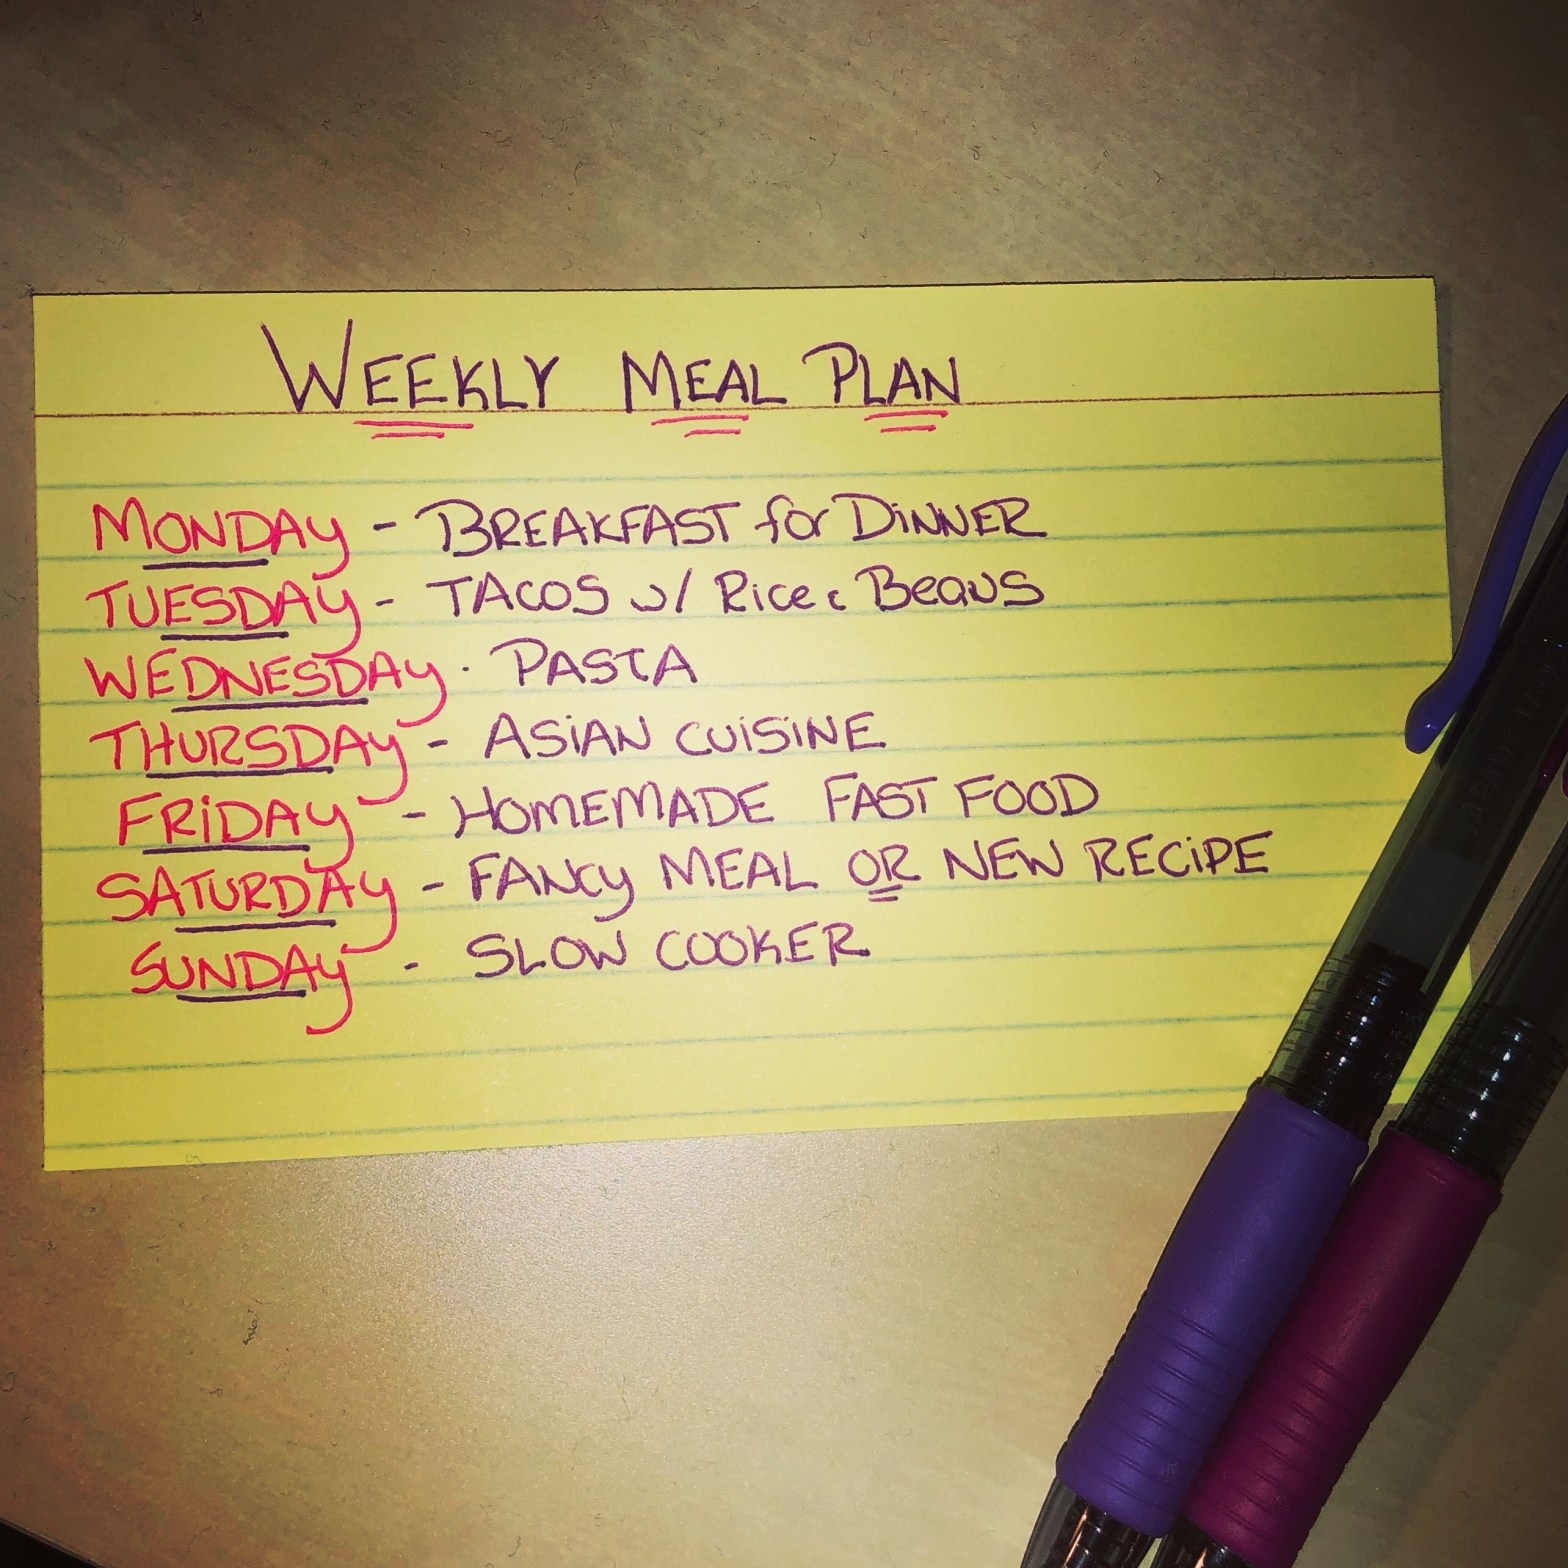 WEEKLY MEAL PLAN
MONDAY - BREAKFAST for DiNNER
TUESDAY - TACOS w/ Rice & Beans
WEDNESDAY - PASTA
THURSDAY - ASiAN CUiSiNE
FRiDAY - HOMEMADE FAST FOOD
SATURDAY - FANCY MEAL OR NEW RECiPE
SUNDAY - SLOW COOKER